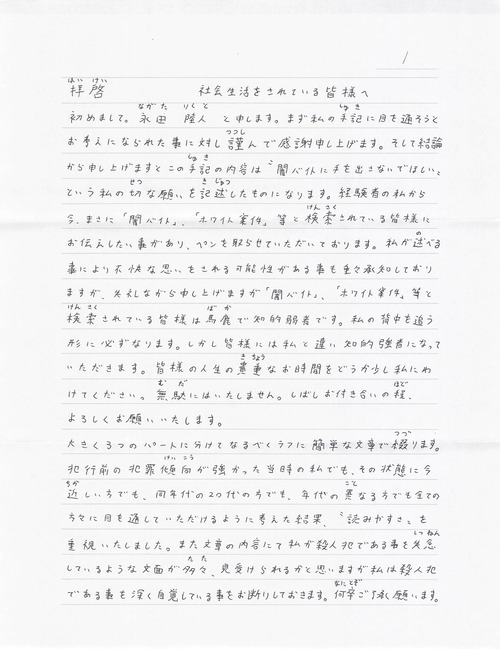 1
拝啓　社会生活をされている皆様へ
初めまして。永田 陸人 と申します。まず私の手記に目を通そうと
お考えになられた事に対し謹んで感謝申し上げます。そして結論
から申し上げますとこの手記の内容は〝闇バイトに手を出さないでほしい〟
という私の切な願いを記述したものになります。経験者の私から
今、まさに「闇バイト」、「ホワイト案件」等と検索されている皆様に
お伝えしたい事があり、ペンを取らせていただいております。私が述べる
事により不快な思いをされる可能性がある事も重々承知しており
ますが、失礼ながら申し上げますが「闇バイト」、「ホワイト案件」等と
検索されている皆様は馬鹿で知的弱者です。私の背中を追う
形に必ずなります。しかし皆様には私と違い知的強者になって
いただきます。皆様の人生の貴重なお時間をどうか少し私にわ
けてください。無駄にはいたしません。しばしお付き合いの程、
よろしくお願いいたします。
大きく3つのパートに分けてなるべくラフに簡単な文章で綴ります。
犯行前の犯罪傾向が強かった当時の私でも、その状態に今
近しい方でも、同年代の20代の方でも、年代の異なる方でも全ての
方々に目を通していただけるように考えた結果、〝読みやすさ〟を
重視いたしました。また文章の内容にて私が殺人犯である事を失念
しているような文面が多々、見受けられるかと思いますが私は殺人犯
である事を深く自覚している事をお断りしておきます。何卒ご了承願います。